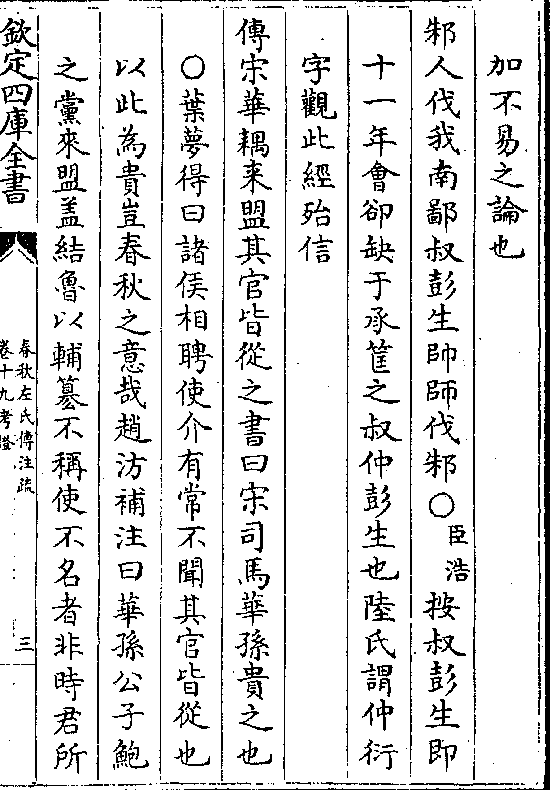 加不易之論也
邾人伐我南鄙叔彭生帥師伐邾〇臣浩按叔彭生即
十一年會卻缺于承筐之叔仲彭生也陸氏謂仲衍
字觀此經殆信
傳宋華耦来盟其官皆從之書曰宋司馬華孫貴之也
〇葉夢得曰諸侯相聘使介有常不聞其官皆從也
以此為貴豈春秋之意哉趙汸補注曰華孫公子鮑
之黨來盟盖結魯以輔篡不稱使不名者非時君所
欽定四庫全書
春秋左氏傳注疏
卷十九考證
三